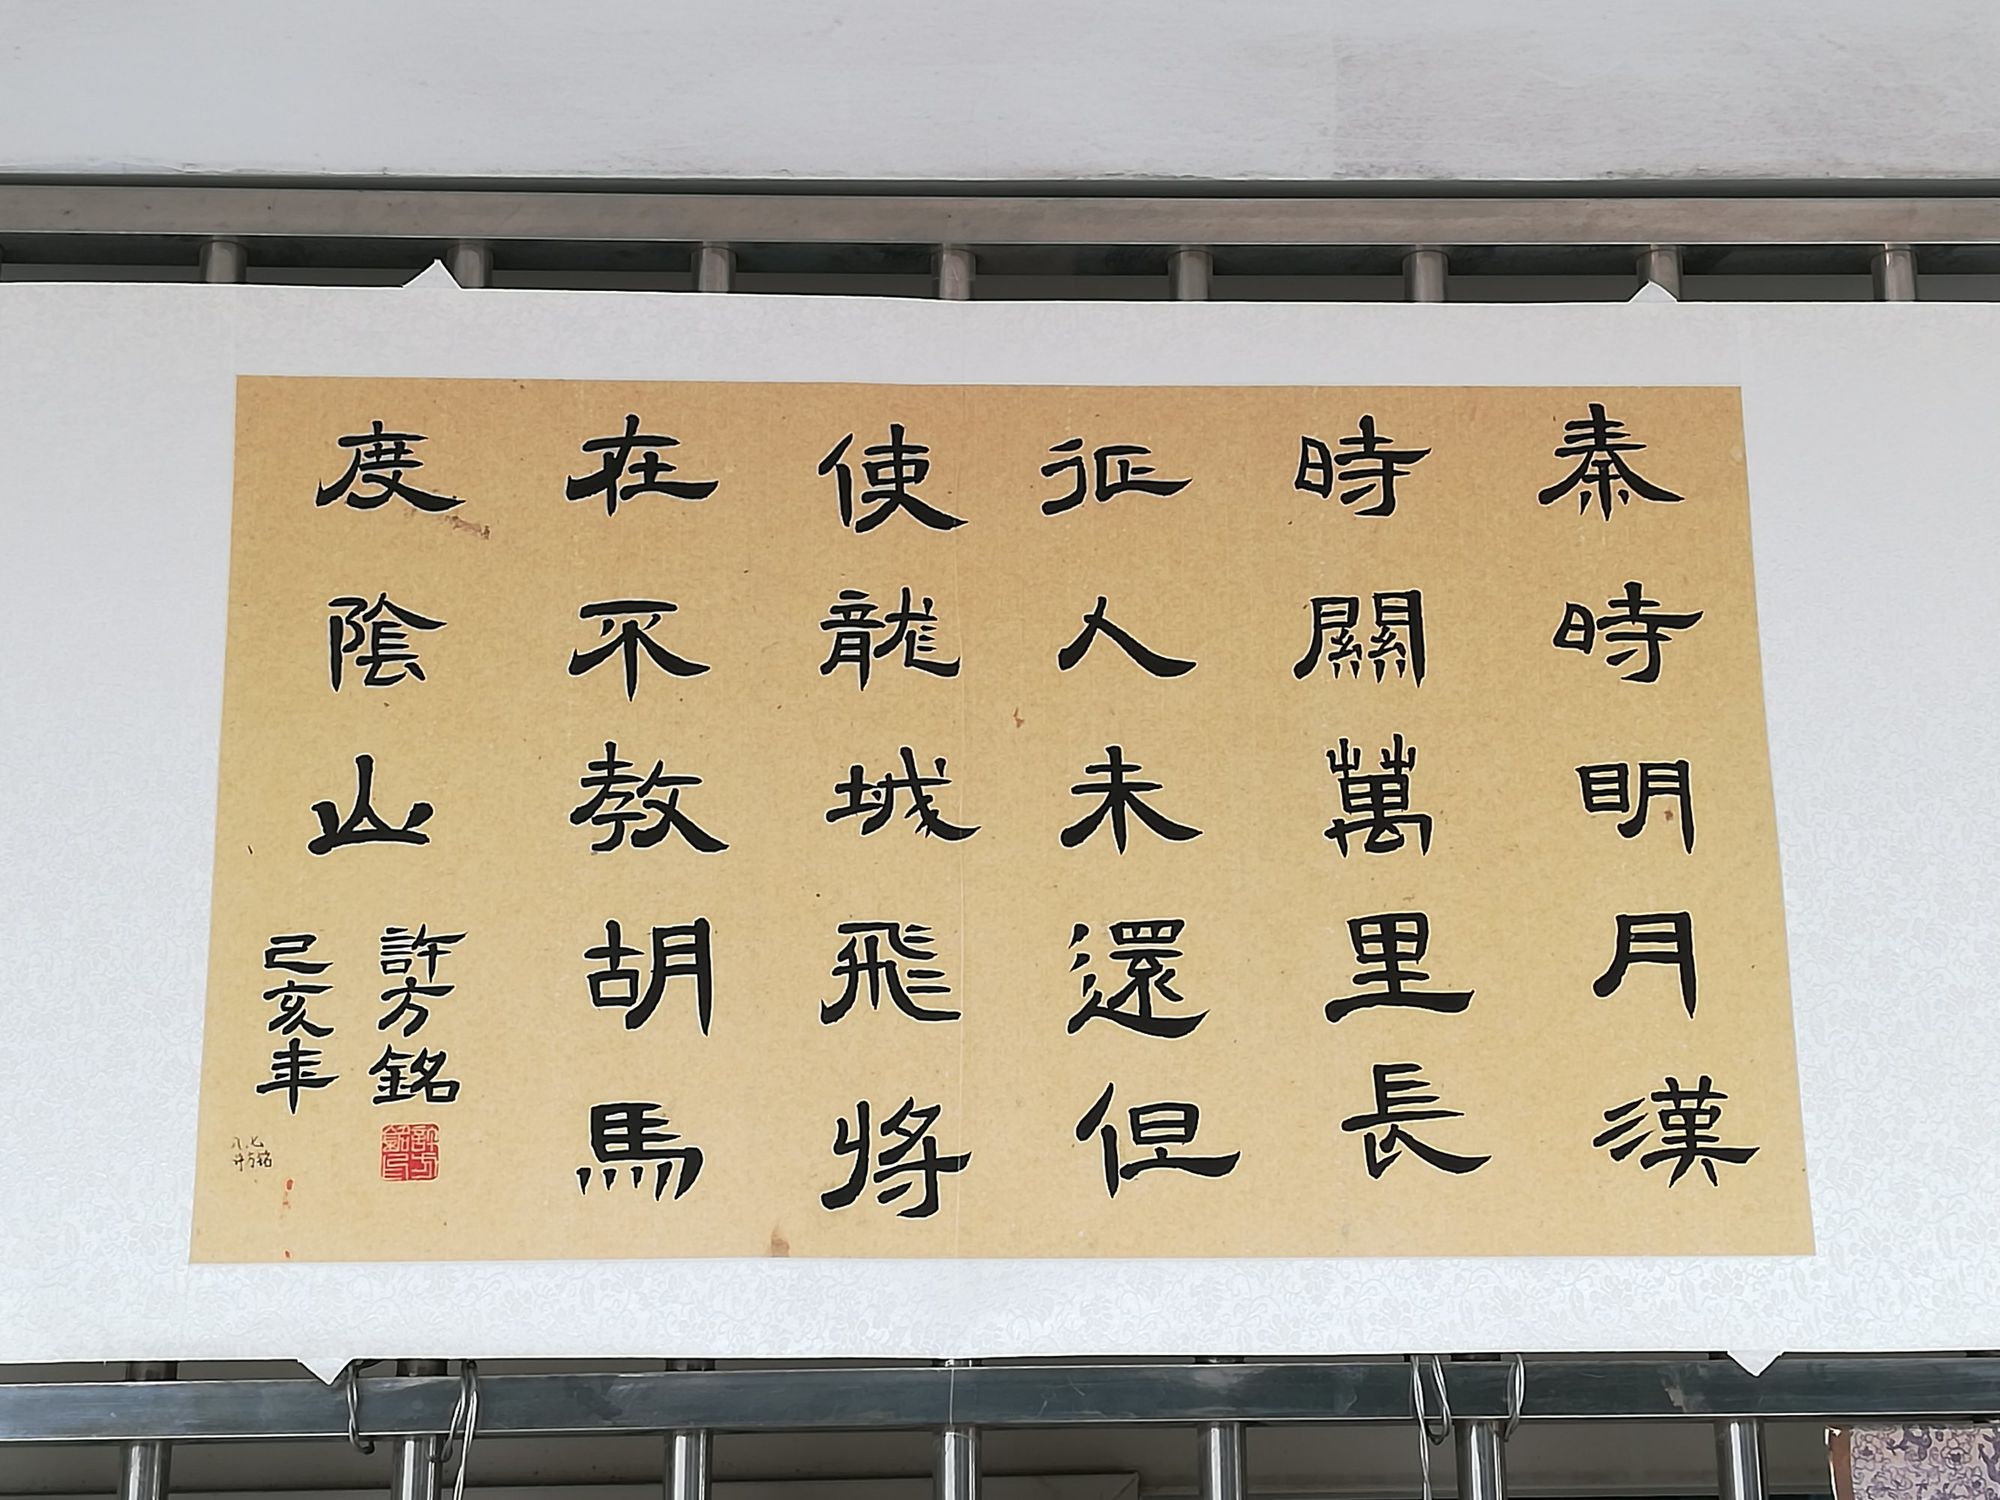 秦時明月漢
時關萬里長
征人未還但
使龍城飛將
在不教胡馬
度陰山
許方銘
己亥年